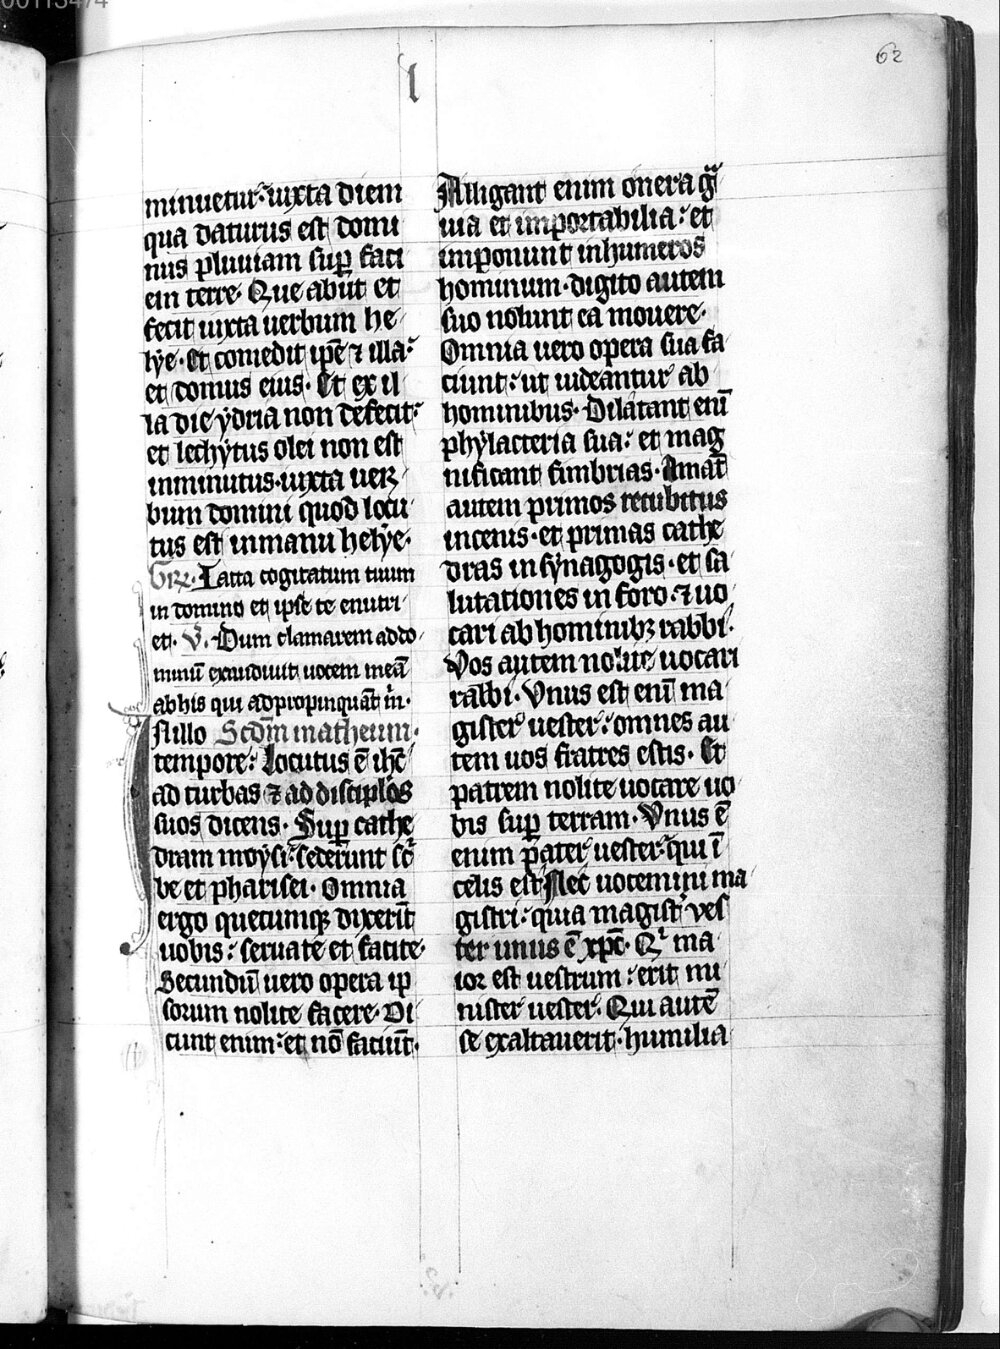 00113474
62
l
minuetur. iuxta diem
qua daturus est domi
nus pluuiam sup̄ faci
em terre. Que abiit et
fecit iuxta uerbum he
lye. Et comedit ip̄e ⁊ illa.
et domus eius. Et ex il
la die ydria non defecit.
et lechytus olei non est
inminutus. iuxta uer
bum domini quod locu
tus est inmanu helye.
Iacta cogitatum tuum
in domino et ipse te enutri
et. V̄. Dum clamarem addo
minū exaudiuit uocem meā
abhis qui adpropinquāt m̄.
N illo Scd̄m matheum.
tempore: Locutus ē ih̄c
ad turbas ⁊ ad discipłos
suos dicens. Sup̄ cathe
dram moysi. sederunt sc̄
be et pharisei. Omnia
ergo quecumq; dixerīt
uobis: seruate et facite.
Secundū uero opera ip
sorum nolite facere. Di
cunt enim: et nō faciūt.
Alligant enim onera gᵃ
uia et importabilia: et
imponunt inhumeros
hominum. digito autem
suo nolunt ea mouere.
Omnia uero opera sua fa
ciunt: ut uideantur ab
hominibus. Dilatant enī
phylacteria sua: et mag
nificant fimbrias. Amāt
autem primos recubitus
incenis. et primas cathe
dras in synagogis. et sa
lutationes in foro. ⁊ uo
cari ab hominibꝫ rabbi.
Vos autem nolite uocari
rabbi. Vnus est enī ma
gister uester: omnes au
tem uos fratres estis. Et
patrem nolite uocare uo
bis sup̄ terram. Vnus ē
enim pater uester. qui ī
celis est. Nec uocemini ma
gistri: quia magist̄ ves
ter unus ē xp̄c. Qⁱ ma
ior est uestrum: erit mi
nister uester. Qui autē
se exaltauerit. humilia